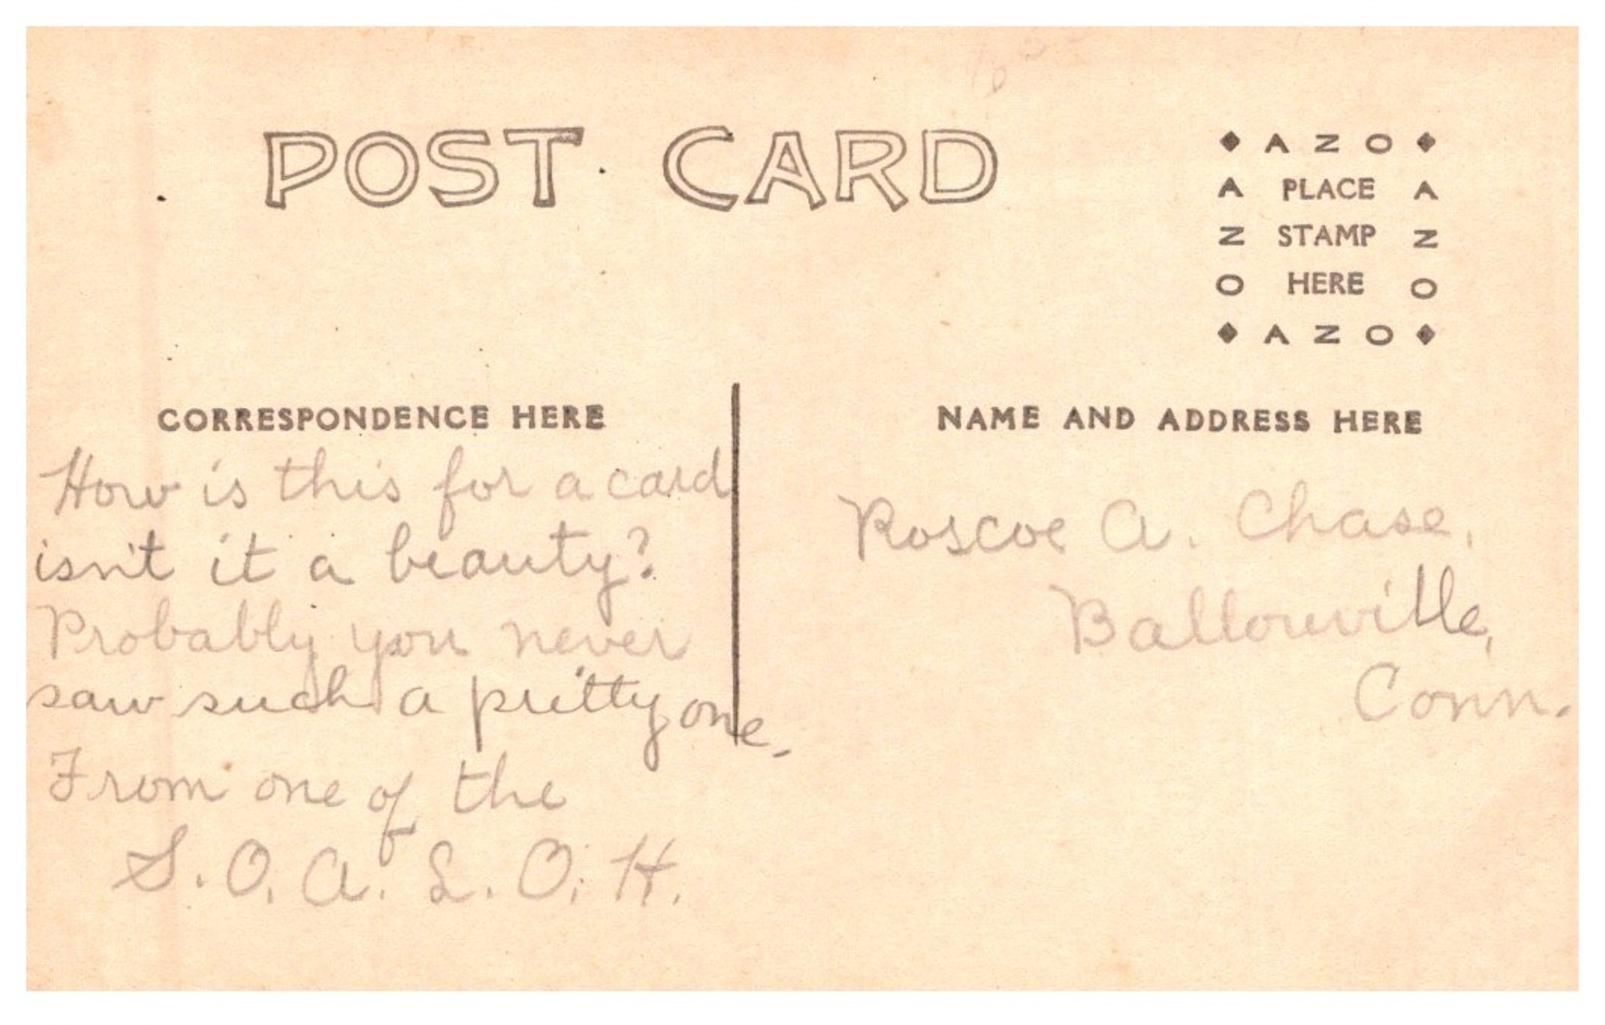 POST CARD
◆ A Z O ◆
A PLACE A
Z STAMP Z
O HERE O
◆ A Z O ◆
CORRESPONDENCE HERE
How is this for a card
isn't it a beauty?
Probably you never
saw such a pretty one.
From one of the
S. O. A. L. O. H.
NAME AND ADDRESS HERE
Roscoe A. Chase,
Ballouville,
Conn.